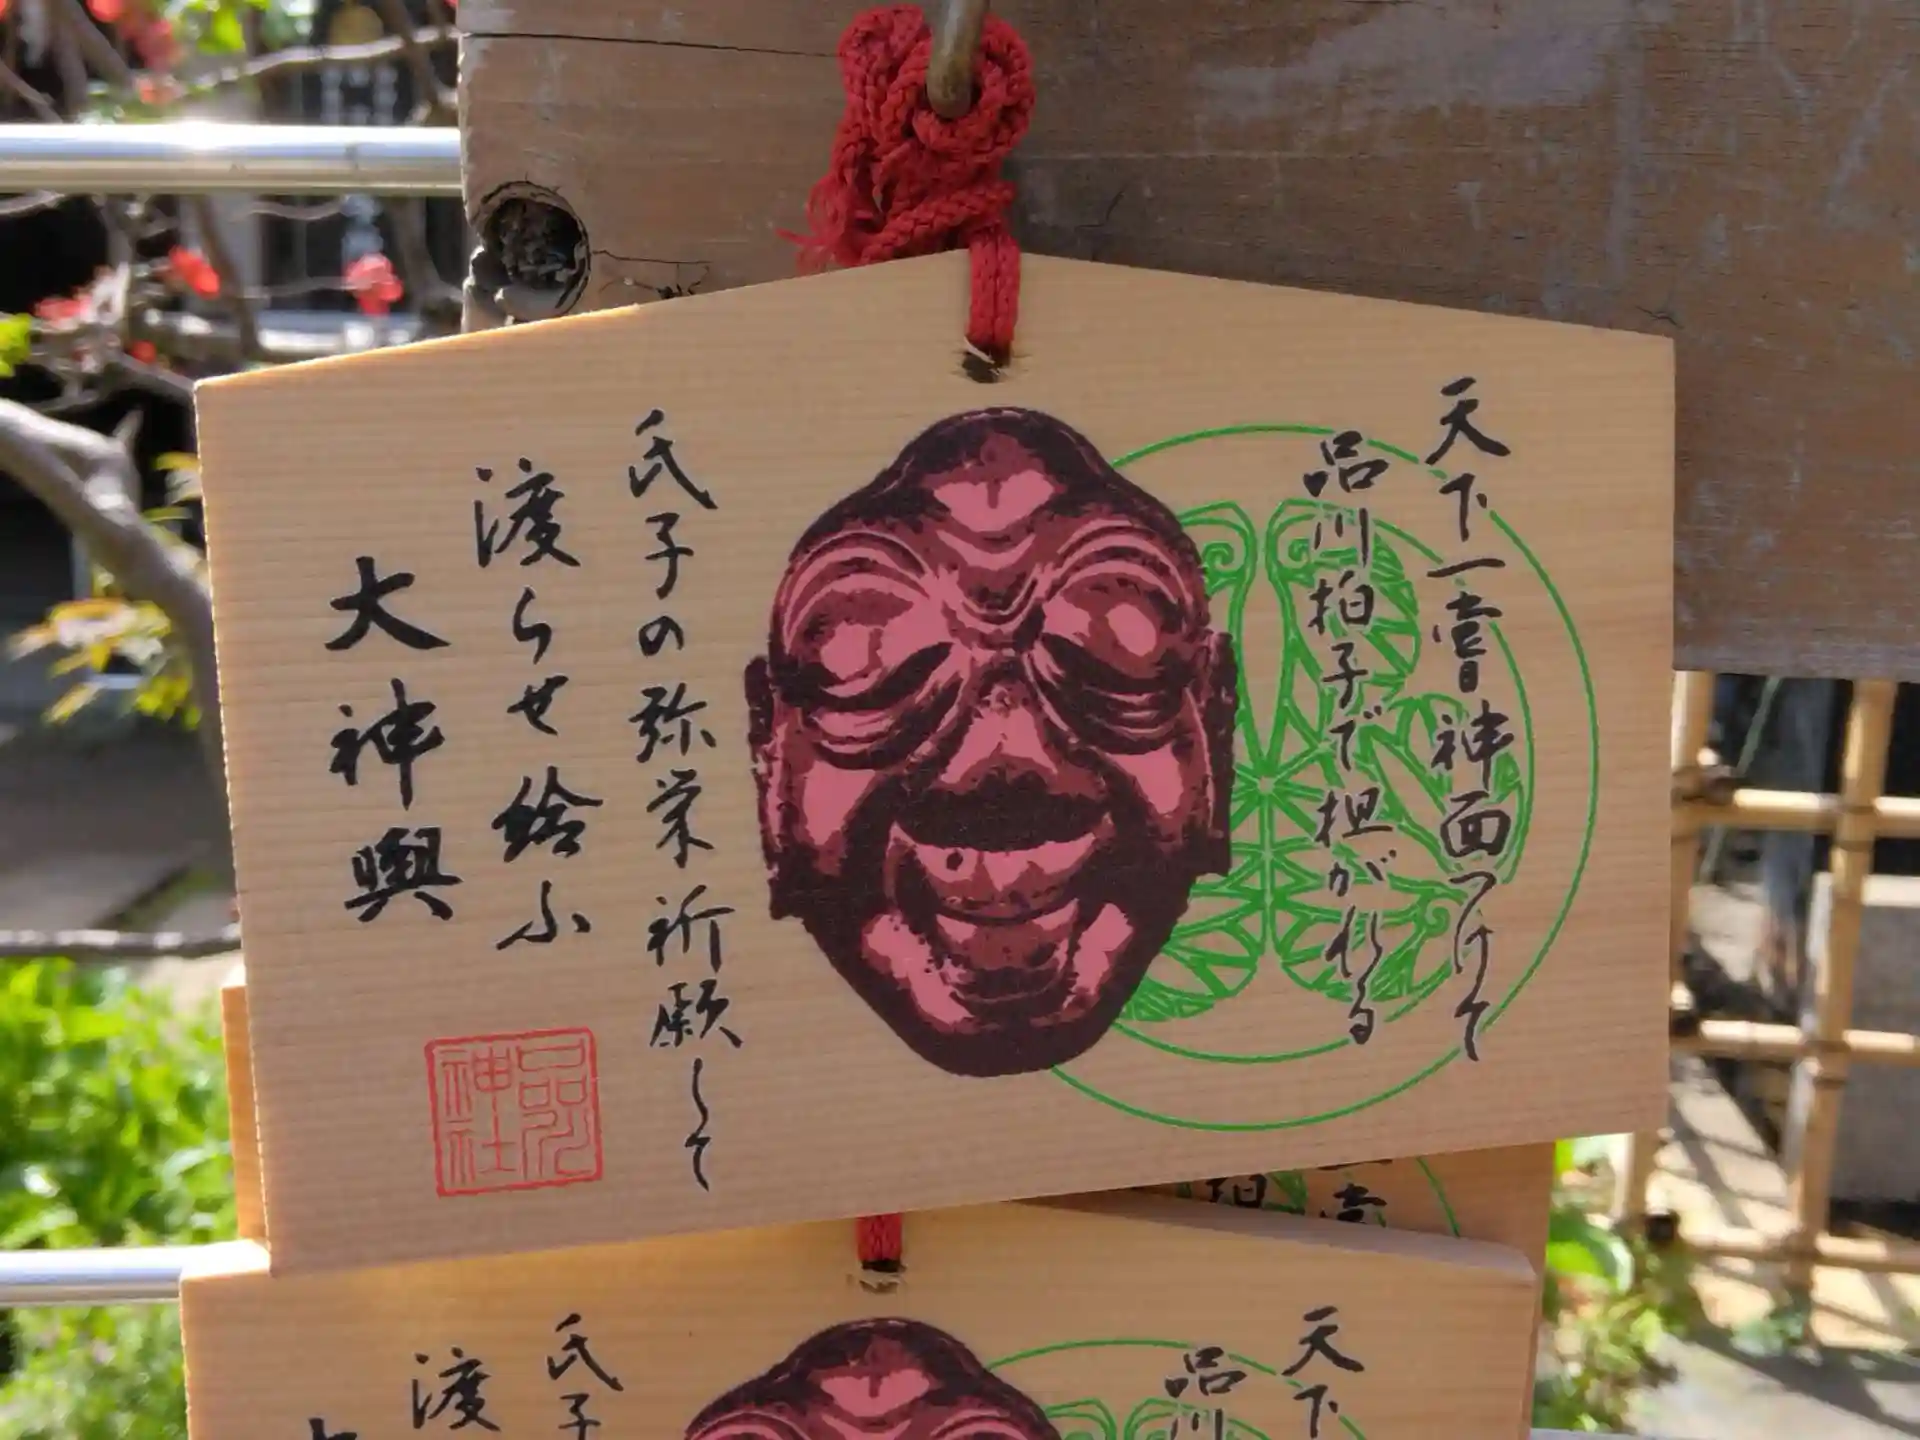 天下一嘗神面つけて
品川拍子で担がれる
氏子の弥栄祈願して
渡らせ給ふ
大神輿
品川神社
担
嘗
天下
品川
氏子
渡